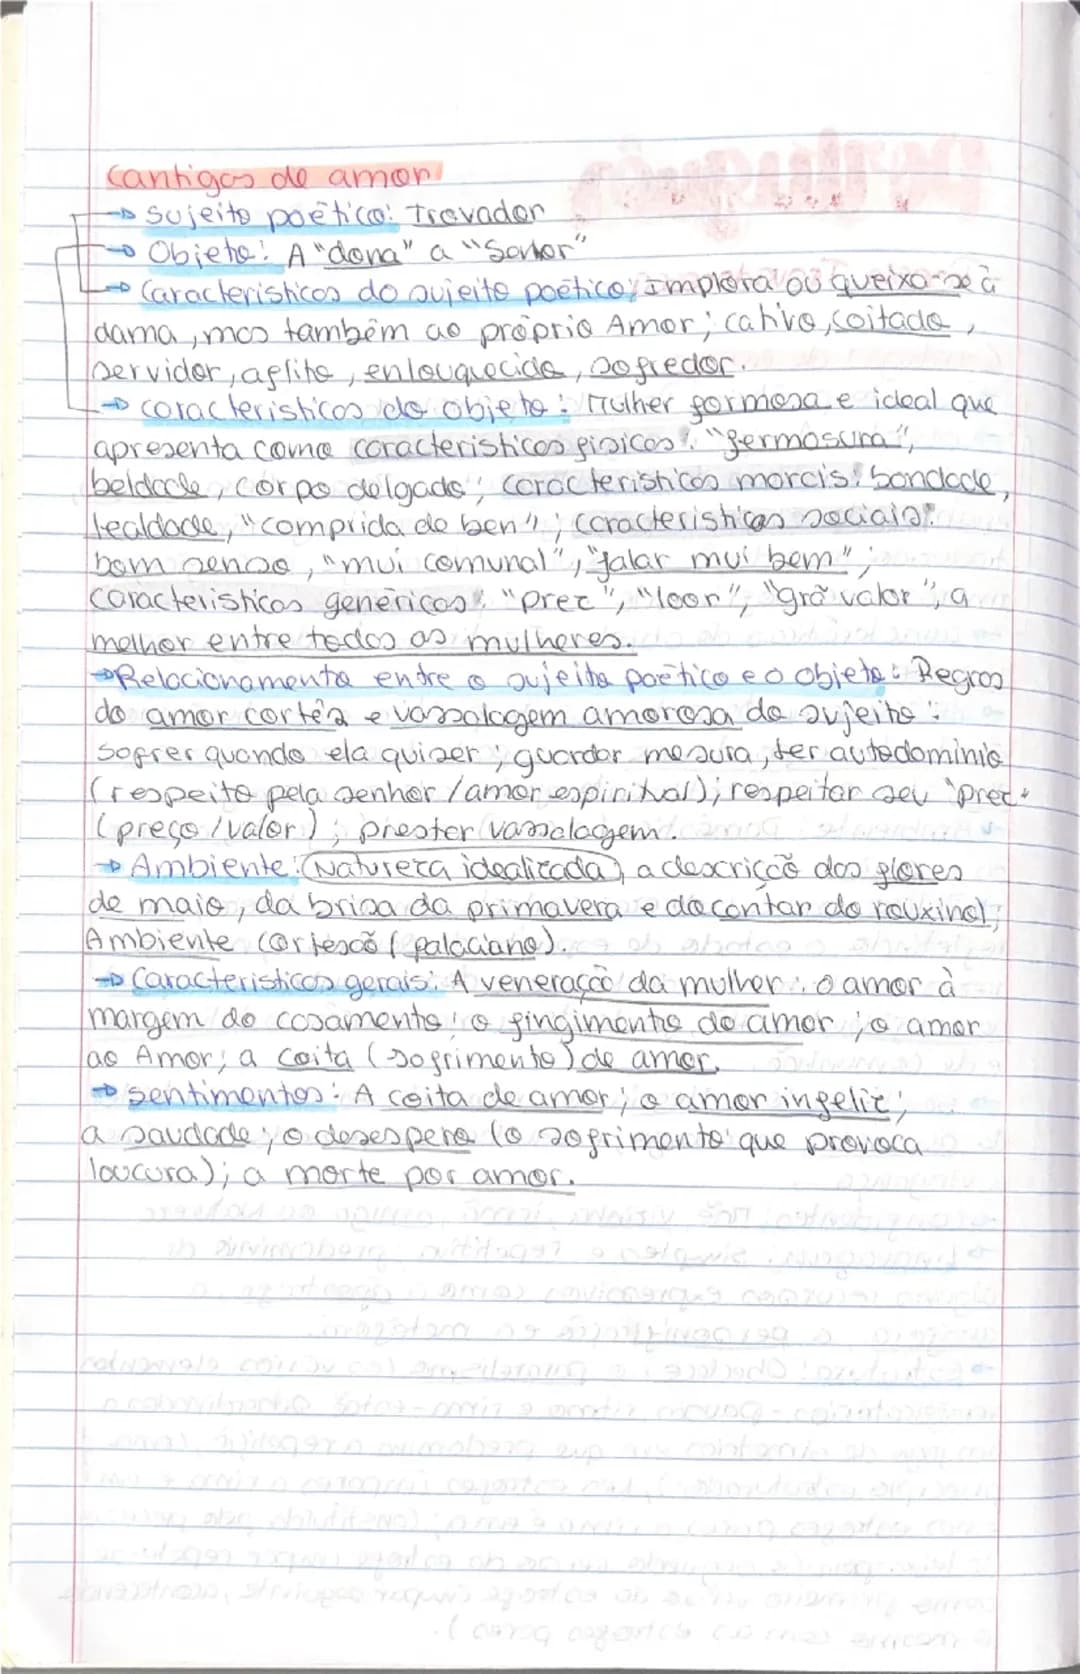 Cantigas de amor
→ Sujeito poético: Trovador
→ Objeto: A "dona" a "Senhor"
→ Características do sujeito poético: Implora ou queixa-se à
dama, mas também ao próprio Amor; cativo, coitado,
servidor, aflito, enlouquecido, sofredor.
→ características do objeto: Mulher formosa e ideal que
apresenta como características físicas: "fermosura",
beldade, corpo delgado; características morais: bondade,
lealdade, "comprida de ben"; características sociais:
bom senso, "mui comunal", "falar mui bem";
características genéricas: "prez", "loor", "grã valor", a
melhor entre todas as mulheres.
→ Relacionamento entre o sujeito poético e o objeto: Regras
do amor cortês e vassalagem amorosa do sujeito:
sofrer quando ela quiser; guardar mesura, ter autodomínio
(respeito pela senhor / amor espiritual); respeitar seu "prez"
(preço / valor); prestar vassalagem.
→ Ambiente: Natureza idealizada, a descrição das flores
de maio, da brisa da primavera e do cantar do rouxinol;
Ambiente cortesão (palaciano).
→ Características gerais: A veneração da mulher; o amor à
margem do casamento; o fingimento do amor; o amor
ao Amor; a coita (sofrimento) de amor.
→ sentimentos: A coita de amor; o amor infeliz;
a saudade; o desespero (o sofrimento que provoca
loucura); a morte por amor.